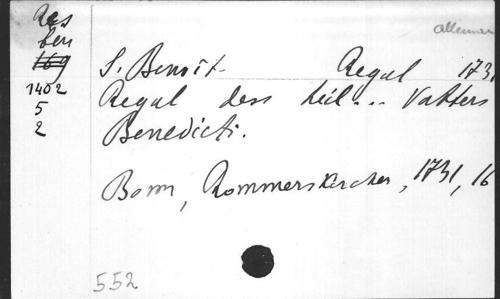 Res
ben
169
1402
5
2
allemand
S. Benoît Regul 1731
Regul dess heil... Vatters
Benedicti.
Bonn, Rommerskirchen, 1731, 16
552